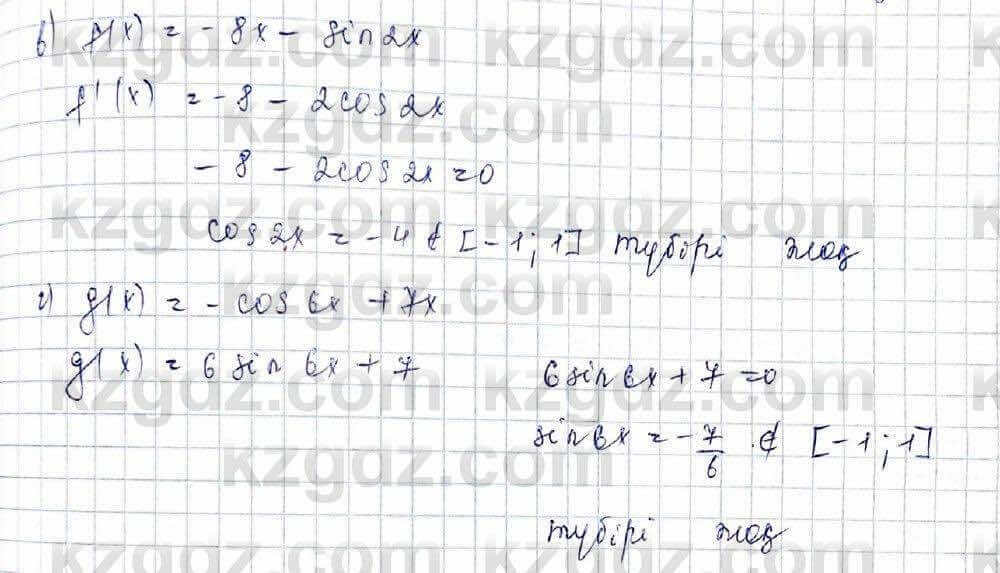 в) f(x) = - 8x - sin2x
f'(x) = - 8 - 2cos2x
- 8 - 2cos2x = 0
cos2x = - 4 ∉ [-1; 1] түбірі жоқ
г) g(x) = - cos6x + 7x
g'(x) = 6 sin 6x + 7 6 sin 6x + 7 = 0
sin 6x = - 7/6 ∉ [-1; 1]
түбірі жоқ
kzgdz.com